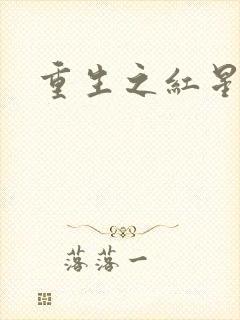 重生之紅星
落落一